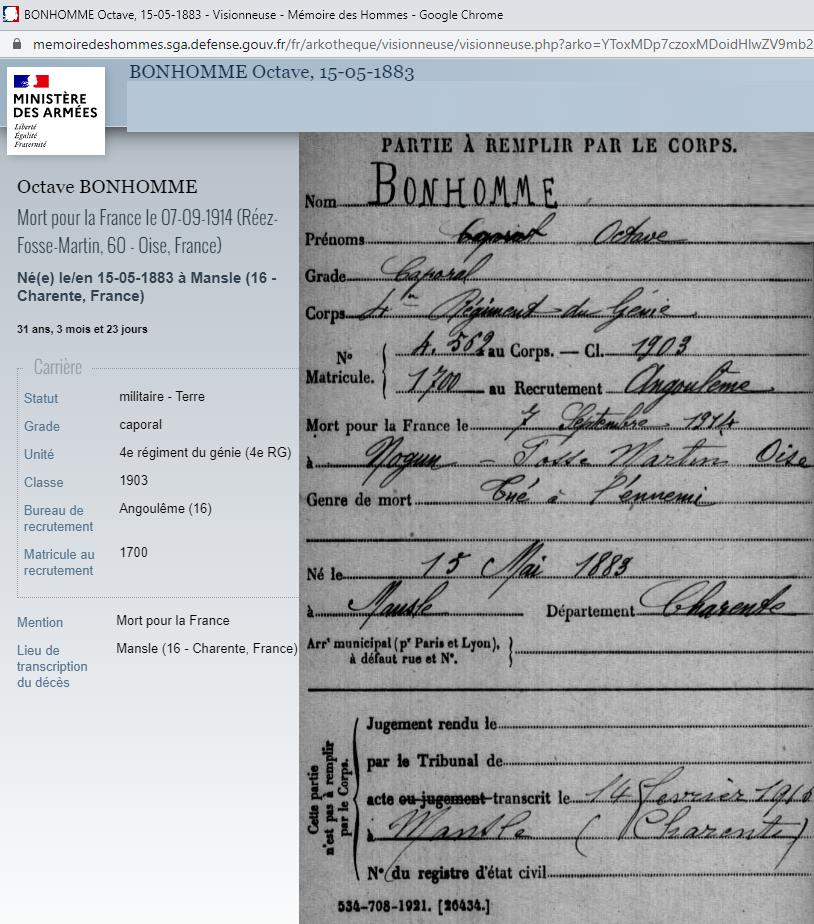 BONHOMME Octave, 15-05-1883 - Visionneuse - Mémoire des Hommes - Google Chrome
memoiredeshommes.sga.defense.gouv.fr/fr/arkotheque/visionneuse/visionneuse.php?arko=YToxMDp7czoxMDoidHlwZV9mb2
BONHOMME Octave, 15-05-1883
MINISTÈRE
DES ARMÉES
Liberté
Égalité
Fraternité
Octave BONHOMME
Mort pour la France le 07-09-1914 (Réez-
Fosse-Martin, 60 - Oise, France)
Né(e) le/en 15-05-1883 à Mansle (16 -
Charente, France)
31 ans, 3 mois et 23 jours
Carrière
Statut militaire - Terre
Grade caporal
Unité 4e régiment du génie (4e RG)
Classe 1903
Bureau de recrutement Angoulême (16)
Matricule au recrutement 1700
Mention Mort pour la France
Lieu de transcription du décès Mansle (16 - Charente, France)
PARTIE À REMPLIR PAR LE CORPS.
Nom BONHOMME
Prénoms Octave
Grade Caporal
Corps 4me Régiment du Génie
No Matricule. 4.562 au Corps. — Cl. 1903
1700 au Recrutement Angoulême
Mort pour la France le 7 Septembre 1914
à - Fosse Martin Oise
Genre de mort Tué à l'ennemi
Né le 15 Mai 1883
à Mansle Département Charente
Arrt municipal (pr Paris et Lyon),
à défaut rue et No.
Cette partie
n'est pas à remplir
par le Corps.
Jugement rendu le
par le Tribunal de
acte ou jugement transcrit le 14 fevrier 1916
à Mansle (Charente)
No du registre d'état civil
534-708-1921. [26434.]